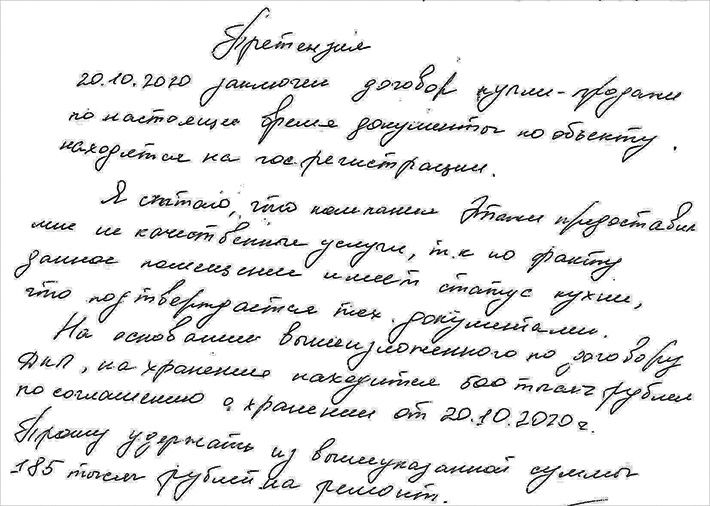 Претензия
20.10.2020 заключен договор купли-продажи
по настоящее время документы по объекту
находятся на гос.регистрации.
Я считаю, что компания Этажи предоставил
мне не качественные услуги, т.к по факту
данное помещение имеет статус кухни,
что подтверждается тех. документами.
На основании вышеизложенного по договору
ДКП, на хранении находится 600 тысяч рублей
по соглашению о хранении от 20.10.2020г.
Прошу удержать из вышеуказанной суммы
185 тысяч рублей на ремонт.